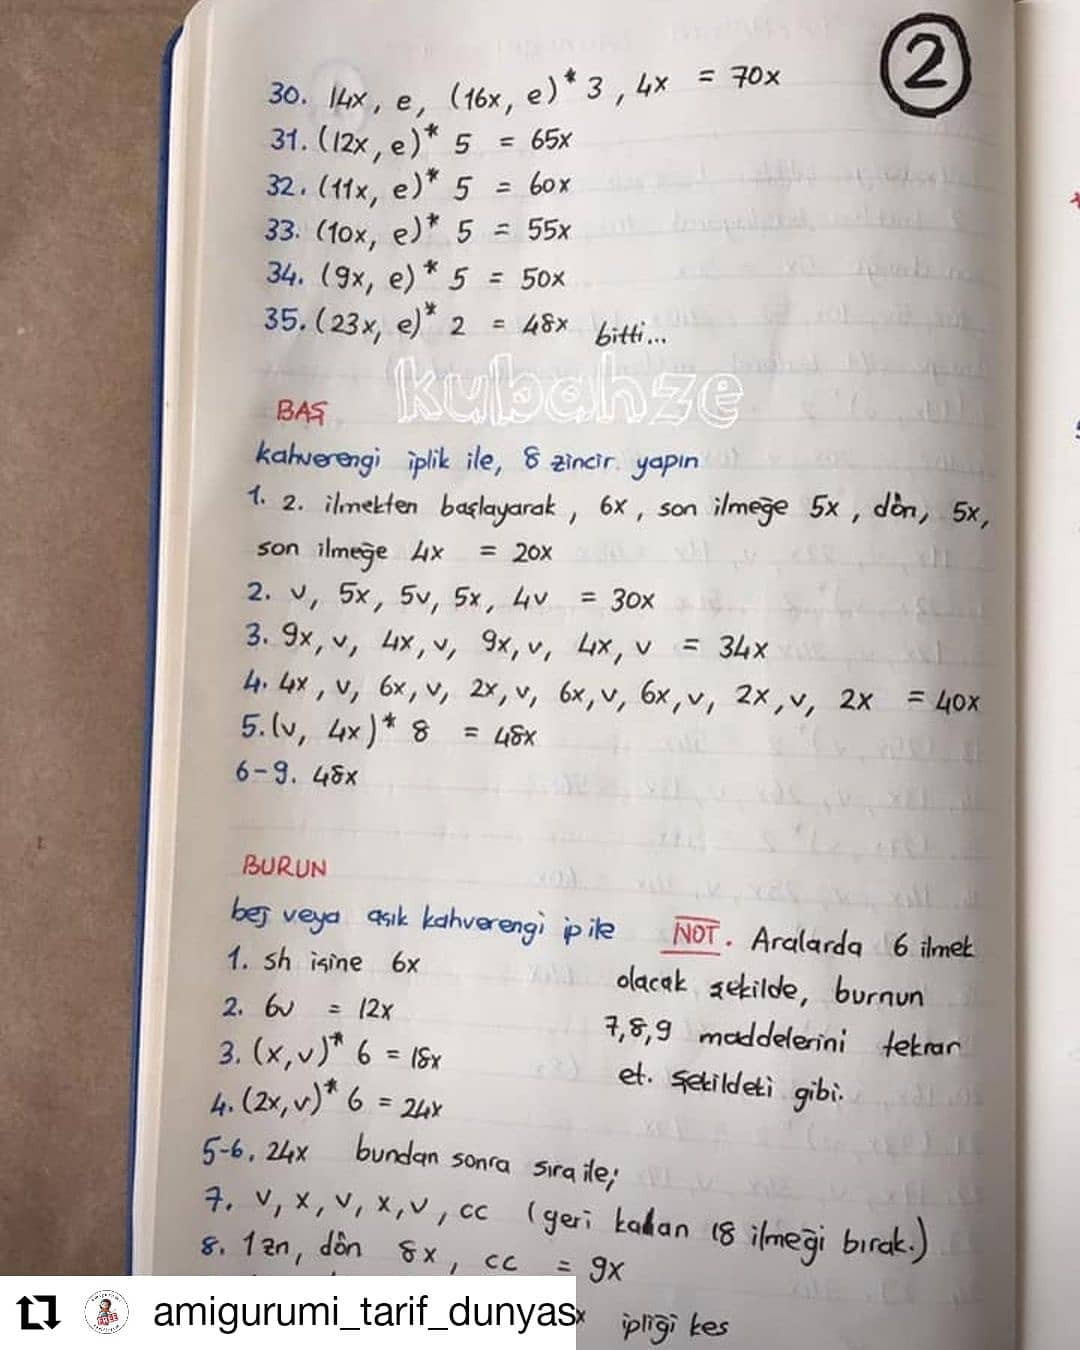 2
30. 14x, e, (16x, e)* 3, 4x = 70x
31. (12x, e)* 5 = 65x
32. (11x, e)* 5 = 60x
33. (10x, e)* 5 = 55x
34. (9x, e)* 5 = 50x
35. (23x, e)* 2 = 48x bitti...
kubahze
BAŞ
kahverengi iplik ile, 8 zincir yapın
1. 2. ilmekten başlayarak, 6x, son ilmeğe 5x, dön, 5x,
son ilmeğe 4x = 20x
2. v, 5x, 5v, 5x, 4v = 30x
3. 9x, v, 4x, v, 9x, v, 4x, v = 34x
4. 4x, v, 6x, v, 2x, v, 6x, v, 6x, v, 2x, v, 2x = 40x
5. (v, 4x)* 8 = 48x
6-9. 48x
BURUN
bej veya açık kahverengi ip ile
1. sh içine 6x
2. 6v = 12x
3. (x, v)* 6 = 18x
4. (2x, v)* 6 = 24x
5-6. 24x bundan sonra sıra ile;
7. v, x, v, x, v, cc (geri kalan 18 ilmeği bırak.)
8. 1zn, dön 8x, cc = 9x
x ipliği kes
NOT. Aralarda 6 ilmek
olacak şekilde, burnun
7,8,9 maddelerini tekrar
et. Şekildeki gibi.
amigurumi_tarif_dunyas